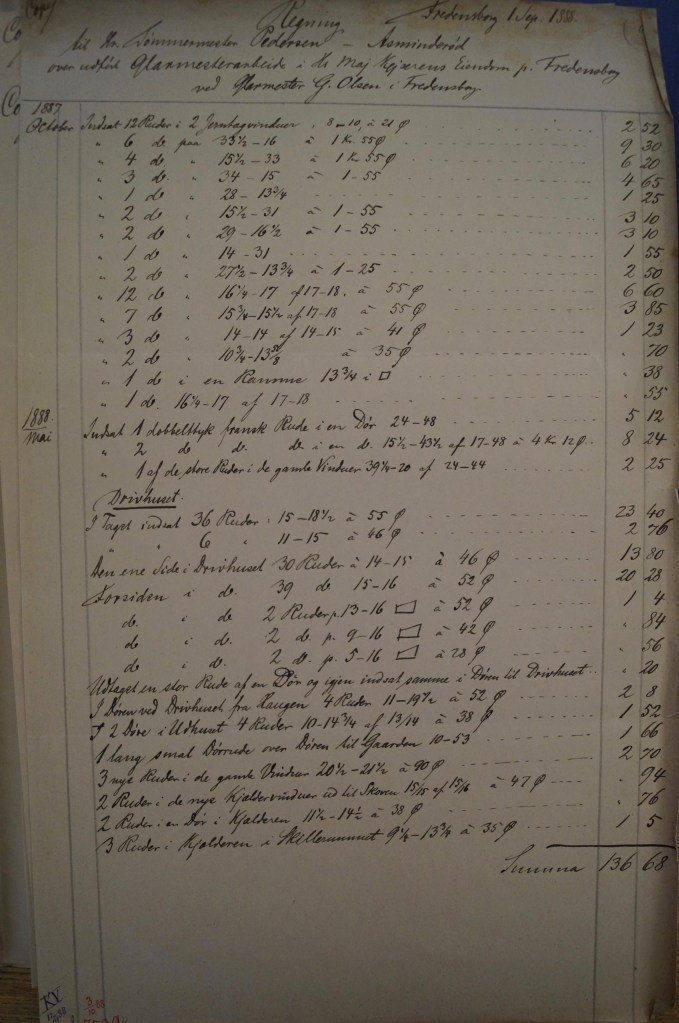 Copy
Regning
Fredensborg 1 Sep. 1888.
til Hr. Tømmermester Pedersen – Asminderød
over udført Glarmesterarbeide i Hs Maj Kejserens Eiendom p. Fredensborg
ved Glarmester G. Olsen i Fredensborg
1887.
October Indsat 12 Ruder i 2 Jerntagvinduer 8–10, à 21 Ø 2 52
" 6 do paa 33½–16 à 1 Kr. 55 Ø 9 30
" 4 do. " 15½–33 à 1 Kr 55 Ø 6 20
" 3 do. " 34–15 à 1–55 4 65
" 1 do " 28–13¾ 1 25
" 2 do " 15½–31 à 1–55 3 10
" 2 do " 29–16½ à 1–55 3 10
" 1 do " 14–31 1 55
" 2 do " 27½–13¾ à 1–25 2 50
" 12 do " 16¼–17 af 17–18. à 55 Ø 6 60
" 7 do " 15¾–15½ af 17–18 à 55 Ø 3 85
" 3 do " 14–14 af 14–15 à 41 Ø 1 23
" 2 do " 10¾–13⅝ à 35 Ø " 70
" 1 do i en Ramme 13¾ i □ " 38
" 1 do. 16¼–17 af 17–18 " 55
1888.
Mai Indsat 1 dobbelttyk fransk Rude i en Dör 24–48 5 12
" 2 do do. do i en do. 15½–43½ af 17–48 à 4 Kr 12 Ø 8 24
" 1 af de store Ruder i de gamle Vinduer 39¼–20 af 24–44 2 25
Drivhuset.
I Taget indsat 36 Ruder: 15–18½ à 55 Ø 23 40
" " 6 " 11–15 à 46 Ø 2 76
Den ene Side i Drivhuset 30 Ruder à 14–15 à 46 Ø 13 80
Forsiden i do. 39 do 15–16 à 52 Ø 20 28
do. i do 2 Ruder p. 13–16 à 52 Ø 1 4
do i do. 2 do. p. 9–16 à 42 Ø " 84
do i do. 2 do. p. 5–16 à 28 Ø " 56
Udtaget en stor Rude af en Dör og igjen indsat samme i Døren til Drivhuset " 20
I Døren ved Drivhuset fra Haugen 4 Ruder 11–19½ à 52 Ø 2 8
I 2 Döre i Udhuset 4 Ruder 10–14¾ af 13/14 à 38 Ø 1 52
1 lang smal Dørrude over Døren til Gaarden 10–53 1 66
3 nye Ruder i de gamle Vinduer 20½–21½ à 90 Ø 2 70
2 Ruder i de nye Kjeldervinduer ud til Skoven 15/15 af 15/16 à 47 Ø " 94
2 Ruder i en Dør i Kjelderen 11½–14½ à 38 Ø " 76
3 Ruder i Kjelderen i Skillerummet 9¼–13¾ à 35 Ø 1 5
Summa 136 68
KV